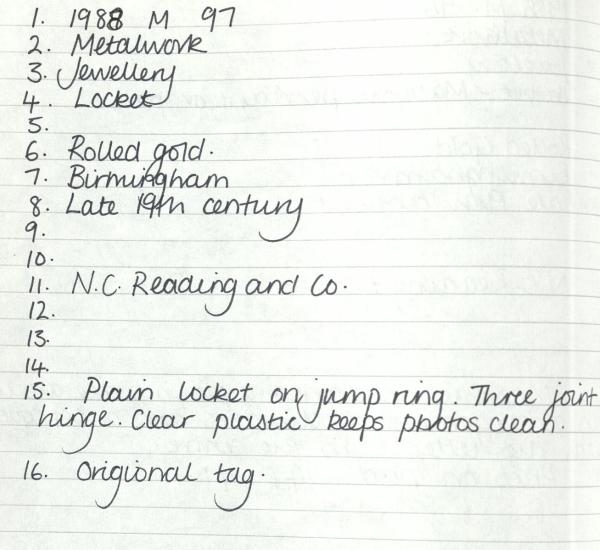 1. 1988 M 97
2. Metalwork
3. Jewellery
4. Locket
5.
6. Rolled gold.
7. Birmingham
8. Late 19th century
9.
10.
11. N.C. Reading and Co.
12.
13.
14.
15. Plain locket on jump ring. Three joint
hinge. Clear plastic keeps photos clean.
16. Origional tag.